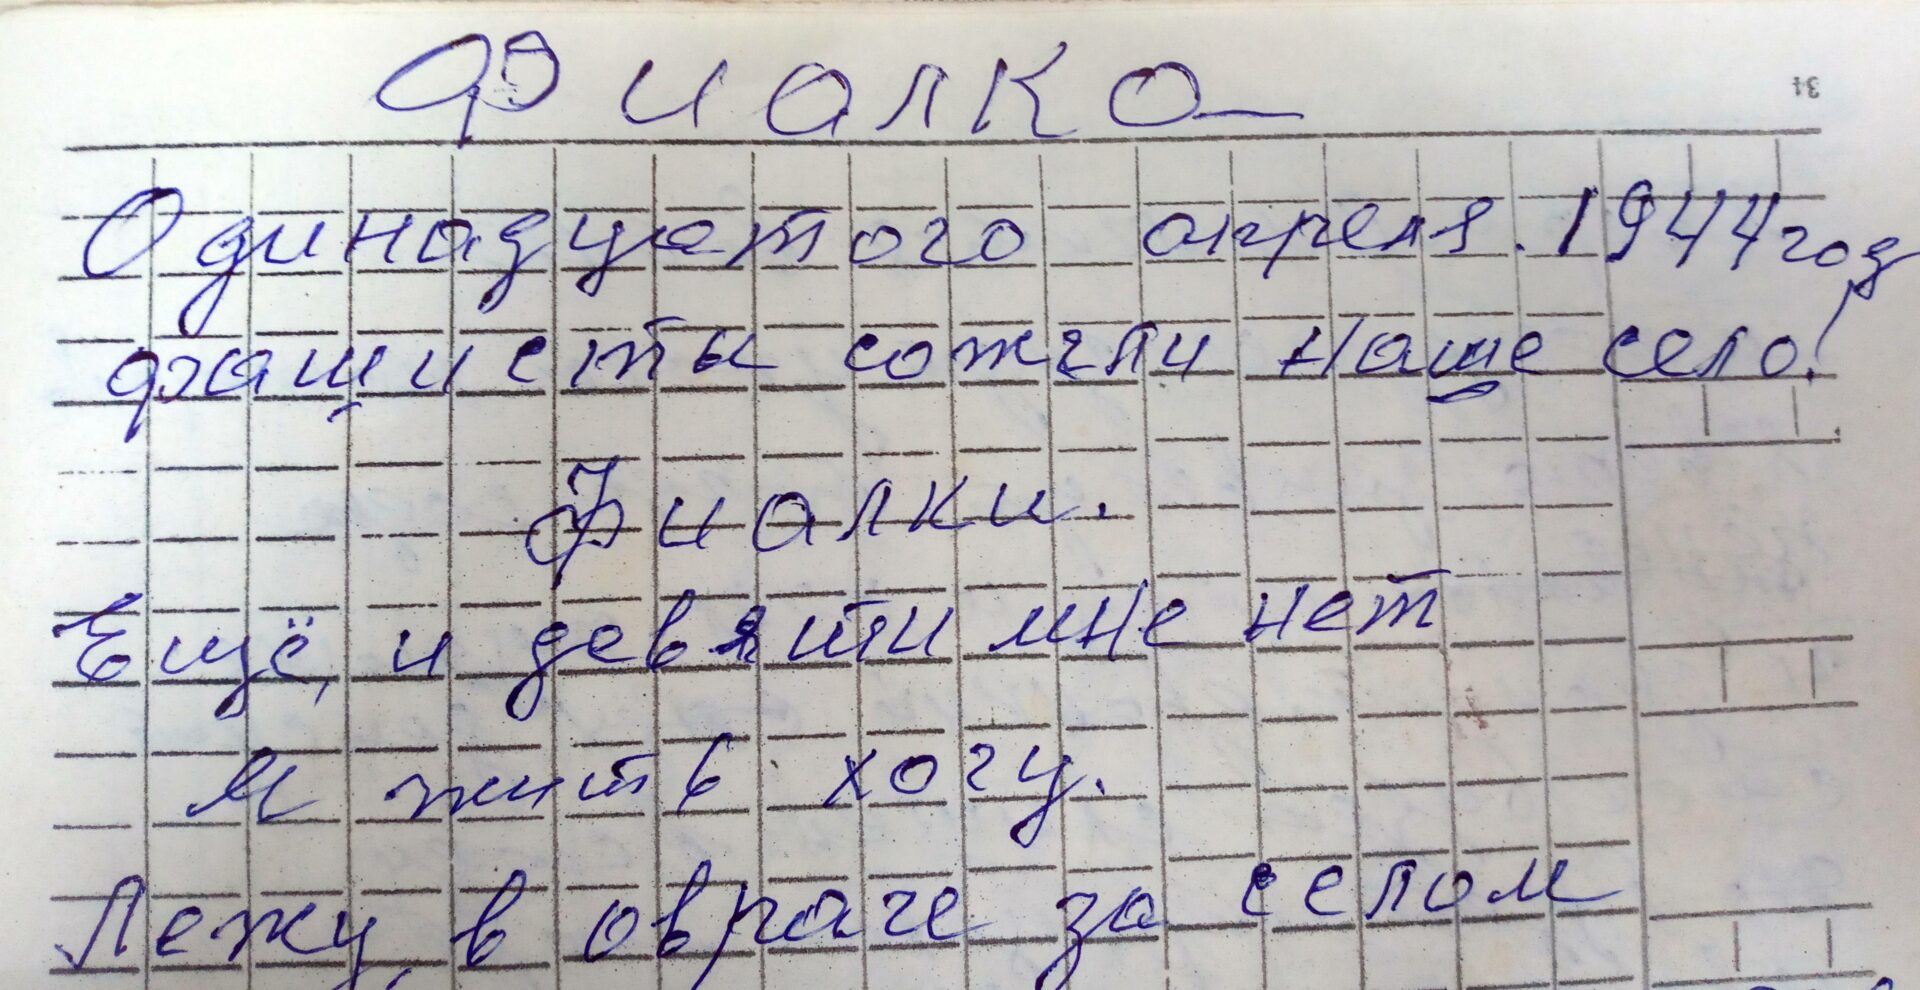 Фиалка
Одинадцатого апреля. 1944 год
фашисты сожгли наше село!
Фиалки.
Ещё, и девяти мне нет
И жить хочу.
Лежу, в овраге за селом